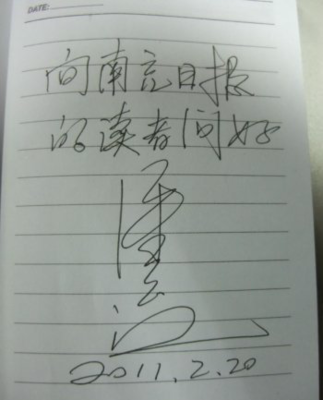 DATE:
向南充日报
的读者问好
2011.2.20